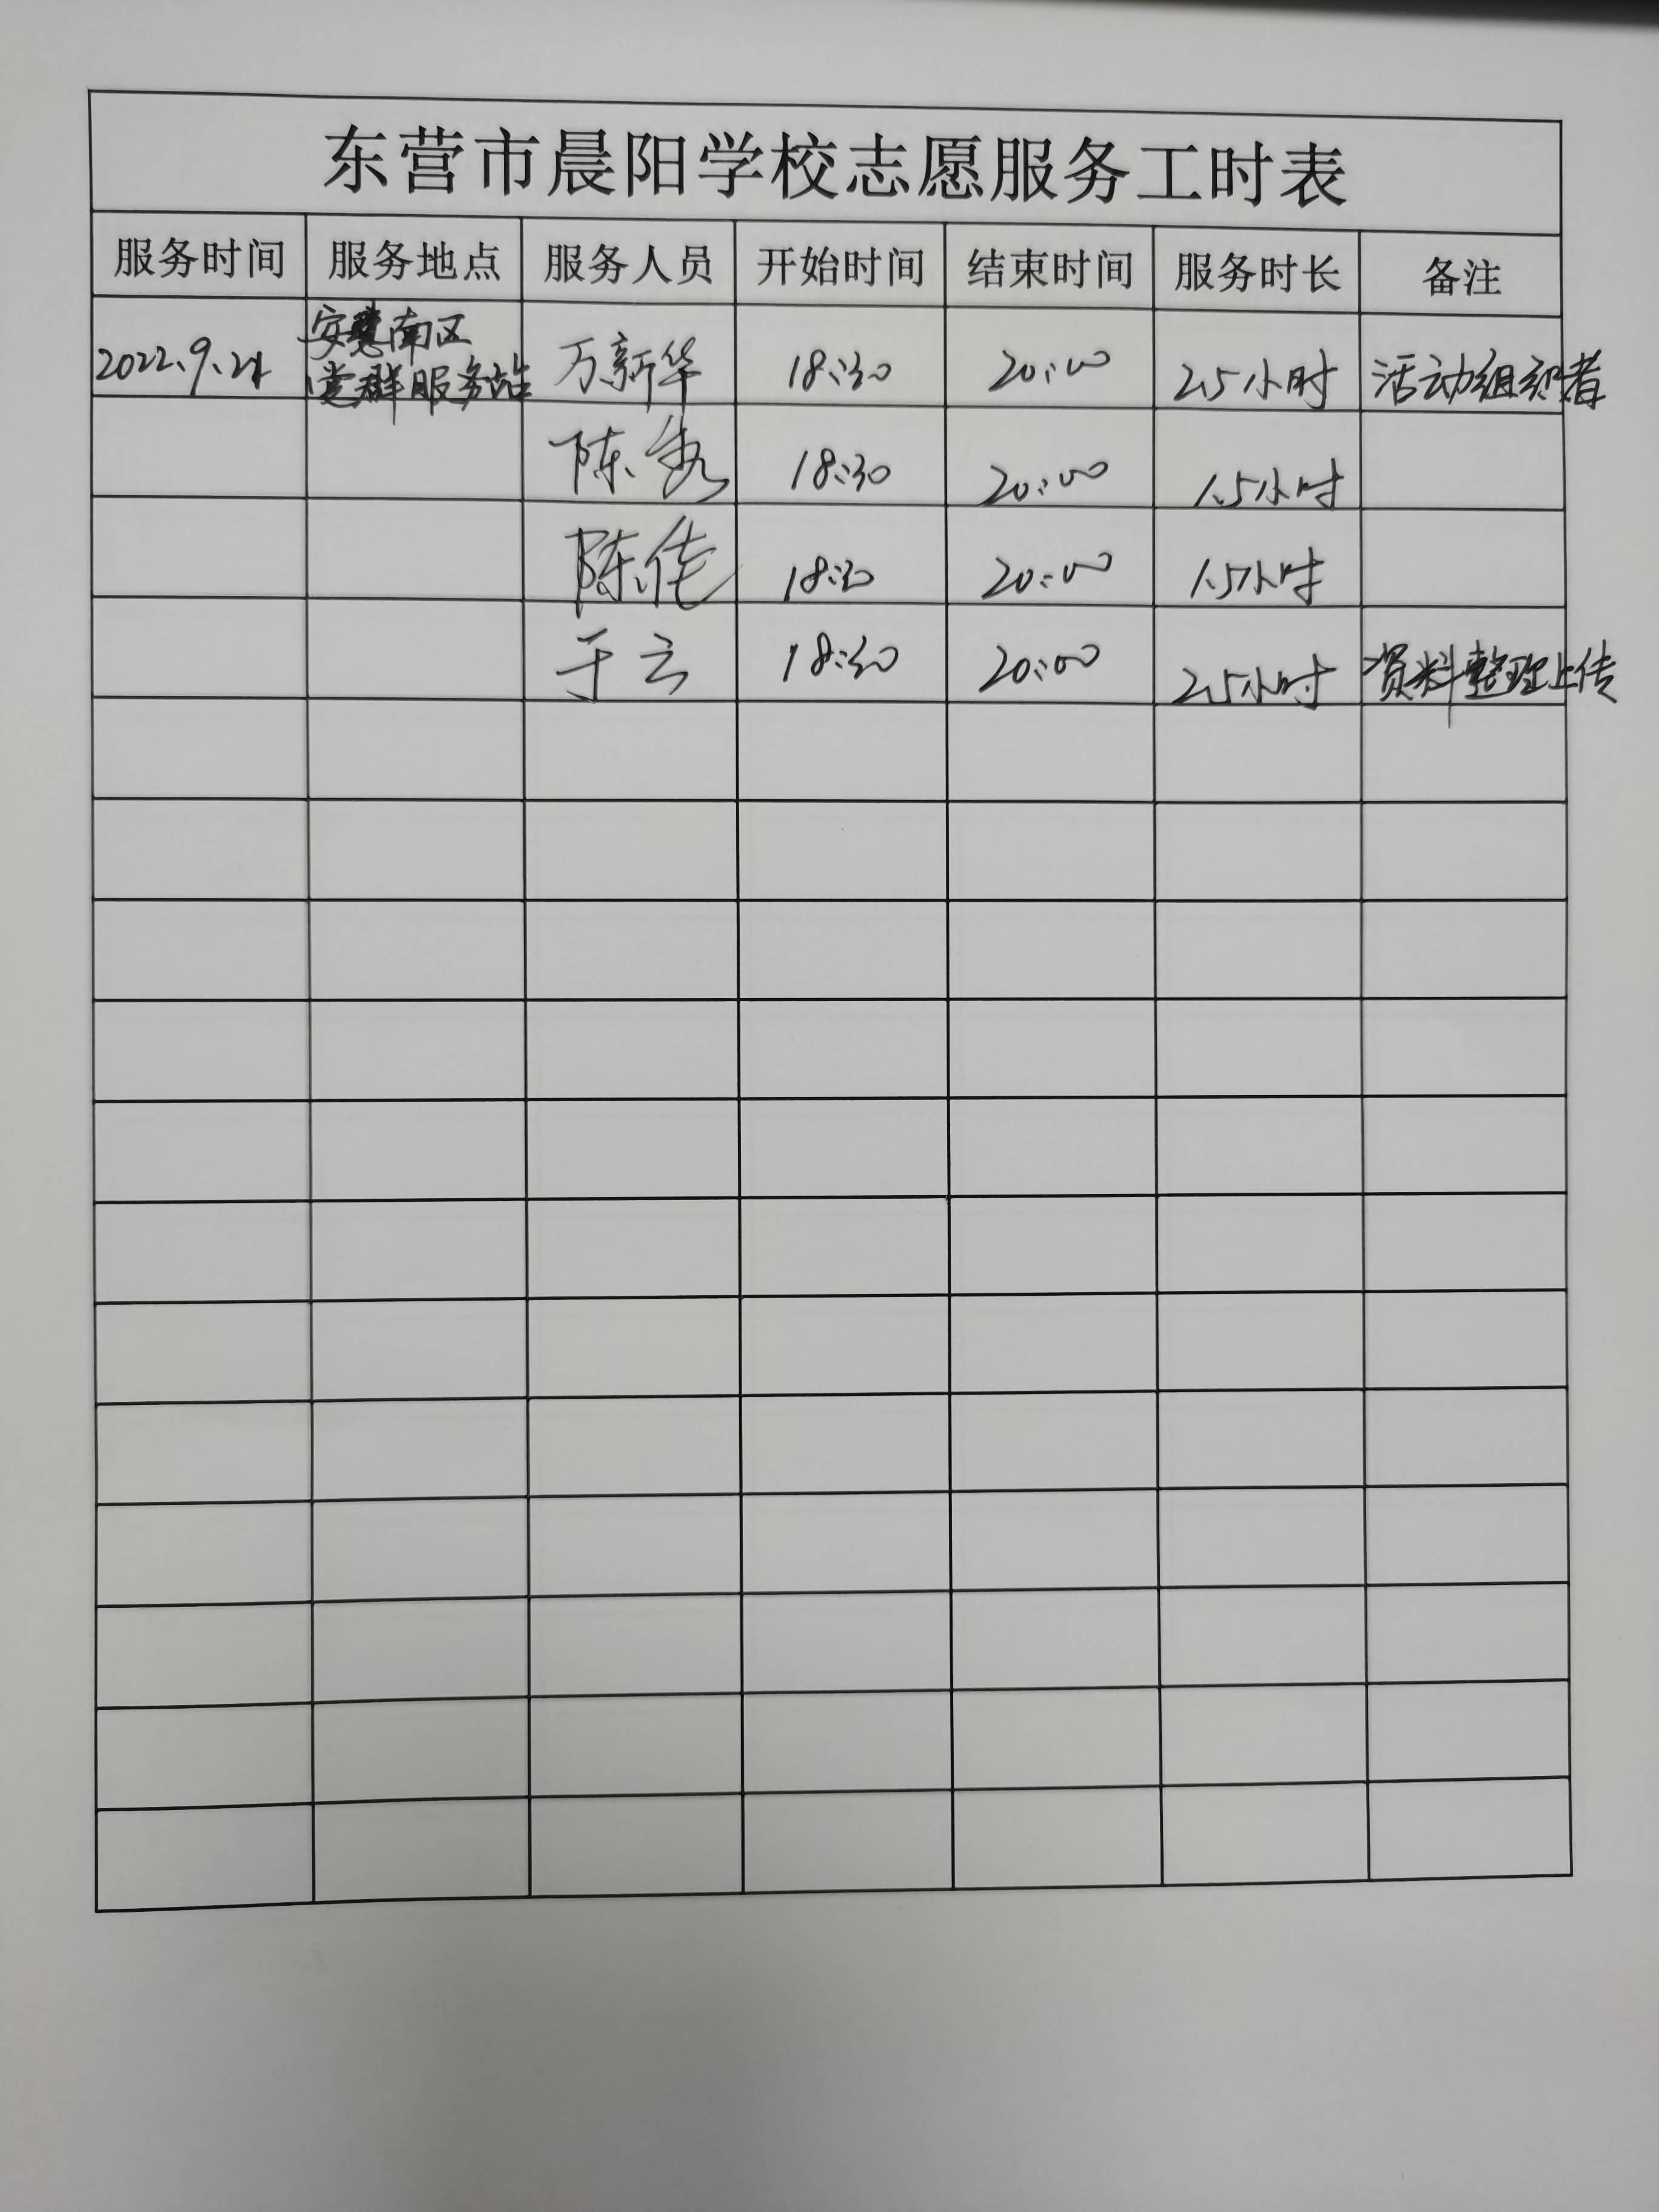 东营市晨阳学校志愿服务工时表
服务时间 服务地点 服务人员 开始时间 结束时间 服务时长 备注
安慧南区
2022.9.21 党群服务站 万新华 18:30 20:00 2.5小时 活动组织者
陈 18:30 20:00 1.5小时
陈佳 18:30 20:00 1.5小时
于云 18:30 20:00 2.5小时 资料整理上传